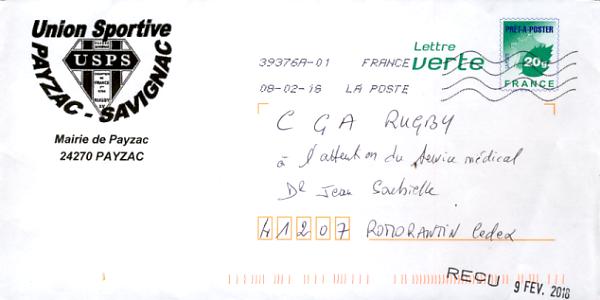 Union Sportive
PAYZAC - SAVIGNAC
USPS
Mairie de Payzac
24270 PAYZAC
Lettre
verte
PRÊT-À-POSTER
20g
FRANCE
39376A-01 FRANCE
08-02-18 LA POSTE
CGA RUGBY
à l'attention du Service médical
Dr Jean
41207 ROMORANTIN Cedex
RECU 9 FEV. 2018